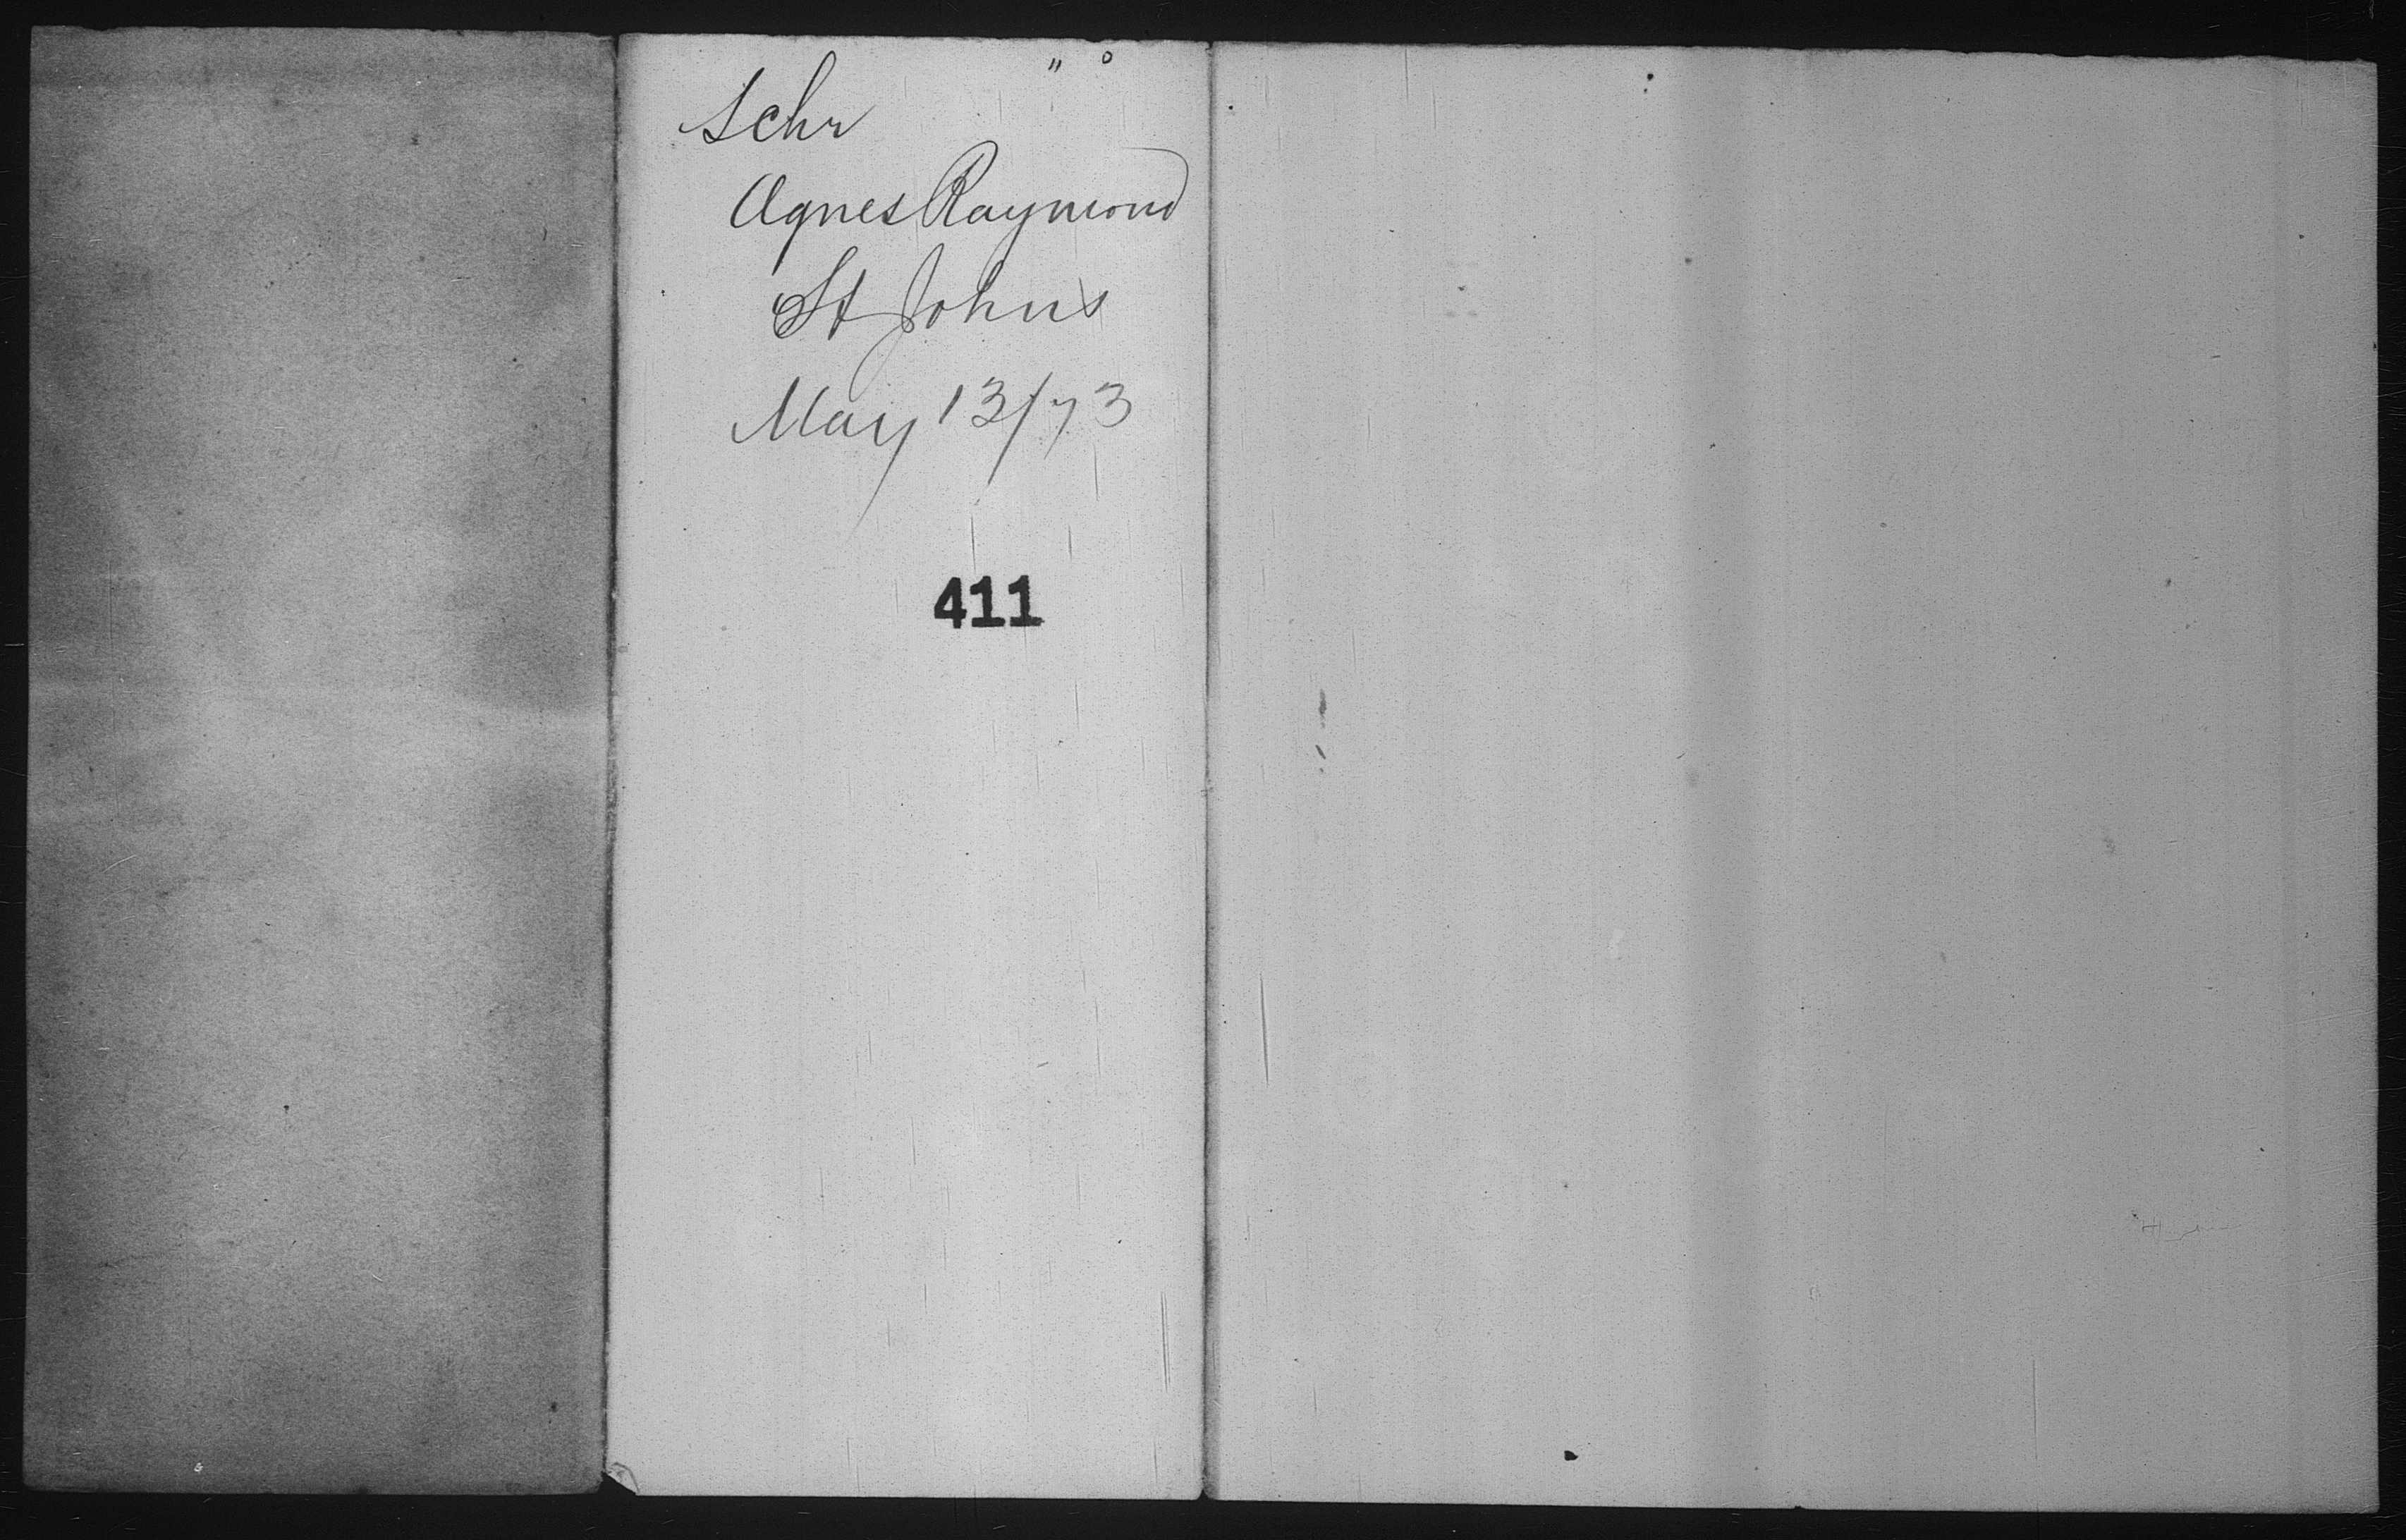 Schr
Agnes Raymond
St Johns
May 13/73
411